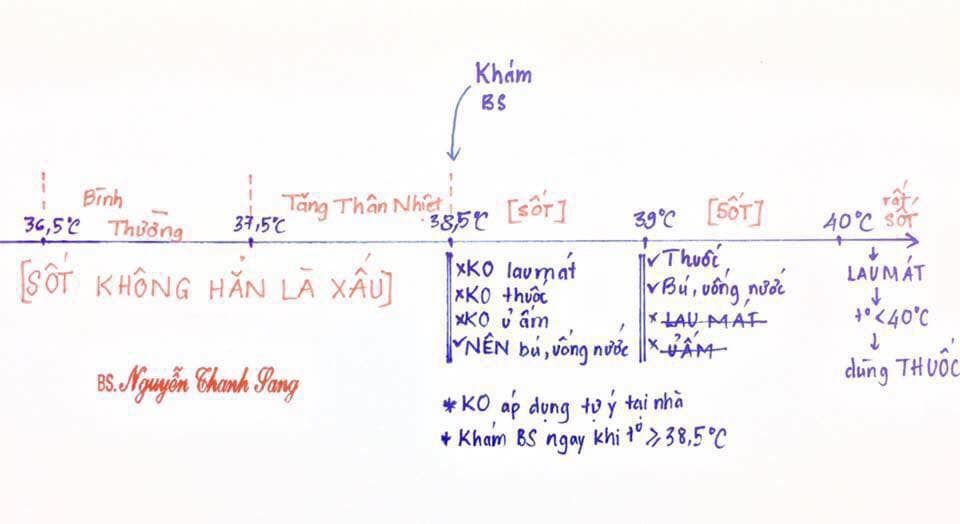 Khám
BS
Bình
Thường
Tăng Thân Nhiệt
[SỐT]
[SỐT]
rất
SỐT
36,5°C
37,5°C
38,5°C
39°C
40°C
[SỐT KHÔNG HẲN LÀ XẤU]
×KO lau mát
×KO thuốc
×KO ủ ấm
✓NÊN bú, uống nước
✓Thuốc
✓Bú, uống nước
× LAU MÁT
× Ủ ẤM
LAU MÁT
t°<40°C
dùng THUỐC
BS. Nguyễn Thanh Sang
* KO áp dụng tự ý tại nhà
+ Khám BS ngay khi t° ≥ 38,5°C